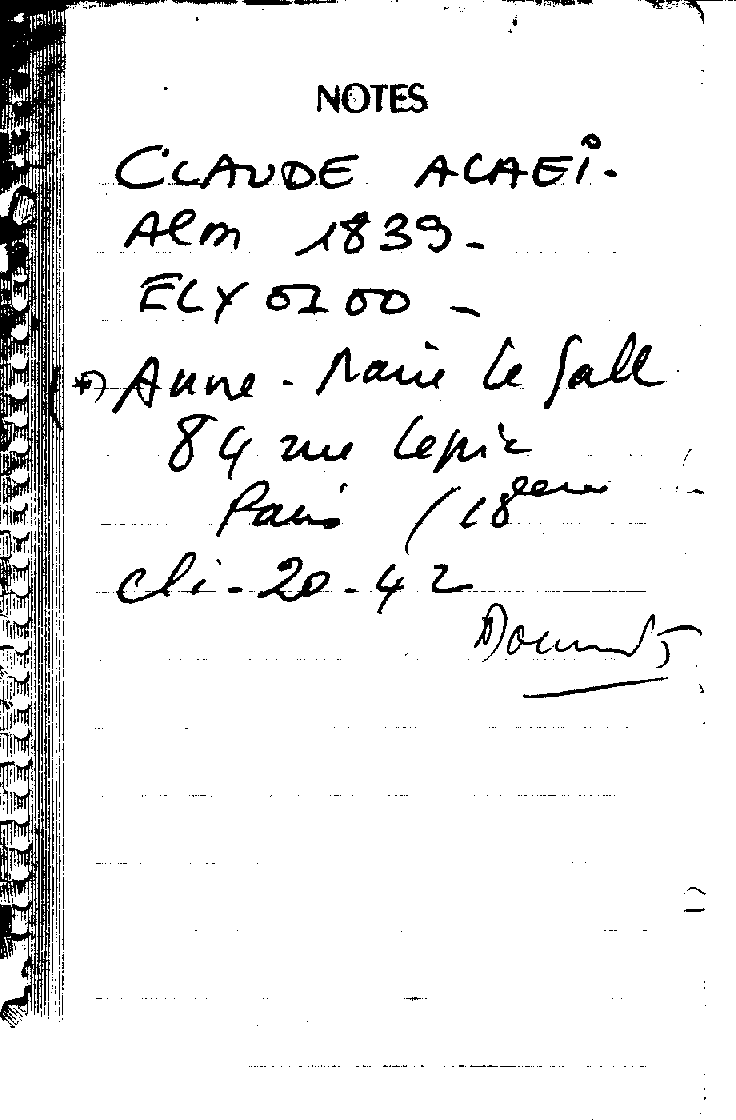 NOTES
CLAUDE ALAEi.
Alm 1839-
ELY 0100 -
*) Anne-Marie Le Gall
84 rue Lepic
Paris (18eme
Cli-20-42